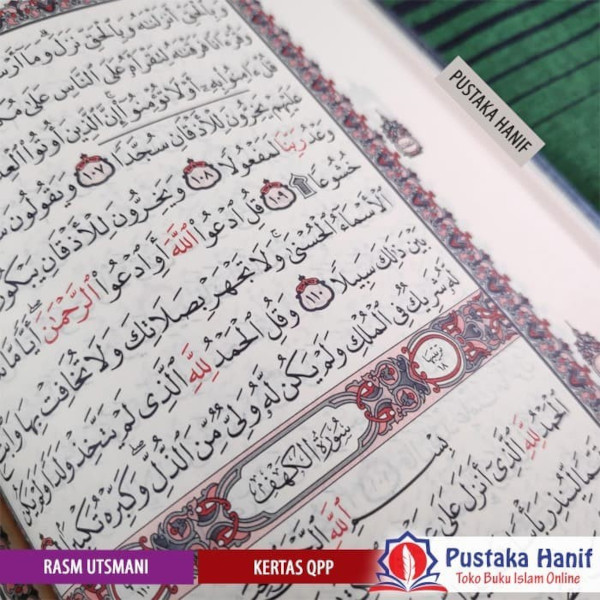 وَبِٱلْحَقِّ أَنزَلْنَٰهُ وَبِٱلْحَقِّ نَزَلَ وَمَآ
وَقُرْءَانًا فَرَقْنَٰهُ لِتَقْرَأَهُۥ عَلَى ٱلنَّاسِ عَلَىٰ
قُلْ ءَامِنُوا۟ بِهِۦٓ أَوْ لَا تُؤْمِنُوٓا۟ إِنَّ ٱلَّذِينَ أُوتُوا۟
عَلَيْهِمْ يَخِرُّونَ لِلْأَذْقَانِ سُجَّدًا ١٠٧ وَيَقُولُونَ
وَعْدُ رَبِّنَا لَمَفْعُولًا ١٠٨ وَيَخِرُّونَ لِلْأَذْقَانِ
خُشُوعًا ۩ ١٠٩ قُلِ ٱدْعُوا۟ ٱللَّهَ أَوِ ٱدْعُوا۟ ٱلرَّحْمَٰنَ أَيًّا مَّا
ٱلْأَسْمَآءُ ٱلْحُسْنَىٰ ۚ وَلَا تَجْهَرْ بِصَلَاتِكَ وَلَا تُخَافِتْ بِهَا
بَيْنَ ذَٰلِكَ سَبِيلًا ١١٠ وَقُلِ ٱلْحَمْدُ لِلَّهِ ٱلَّذِى لَمْ يَتَّخِذْ وَلَدًا
لَّهُۥ شَرِيكٌ فِى ٱلْمُلْكِ وَلَمْ يَكُن لَّهُۥ وَلِىٌّ مِّنَ ٱلذُّلِّ ۖ وَكَبِّرْهُ
سُورَةُ الكَهْفِ
بِسْمِ ٱللَّهِ
ٱلْحَمْدُ لِلَّهِ ٱلَّذِىٓ أَنزَلَ عَلَىٰ
PUSTAKA HANIF
RASM UTSMANI
KERTAS QPP
Pustaka Hanif
Toko Buku Islam Online